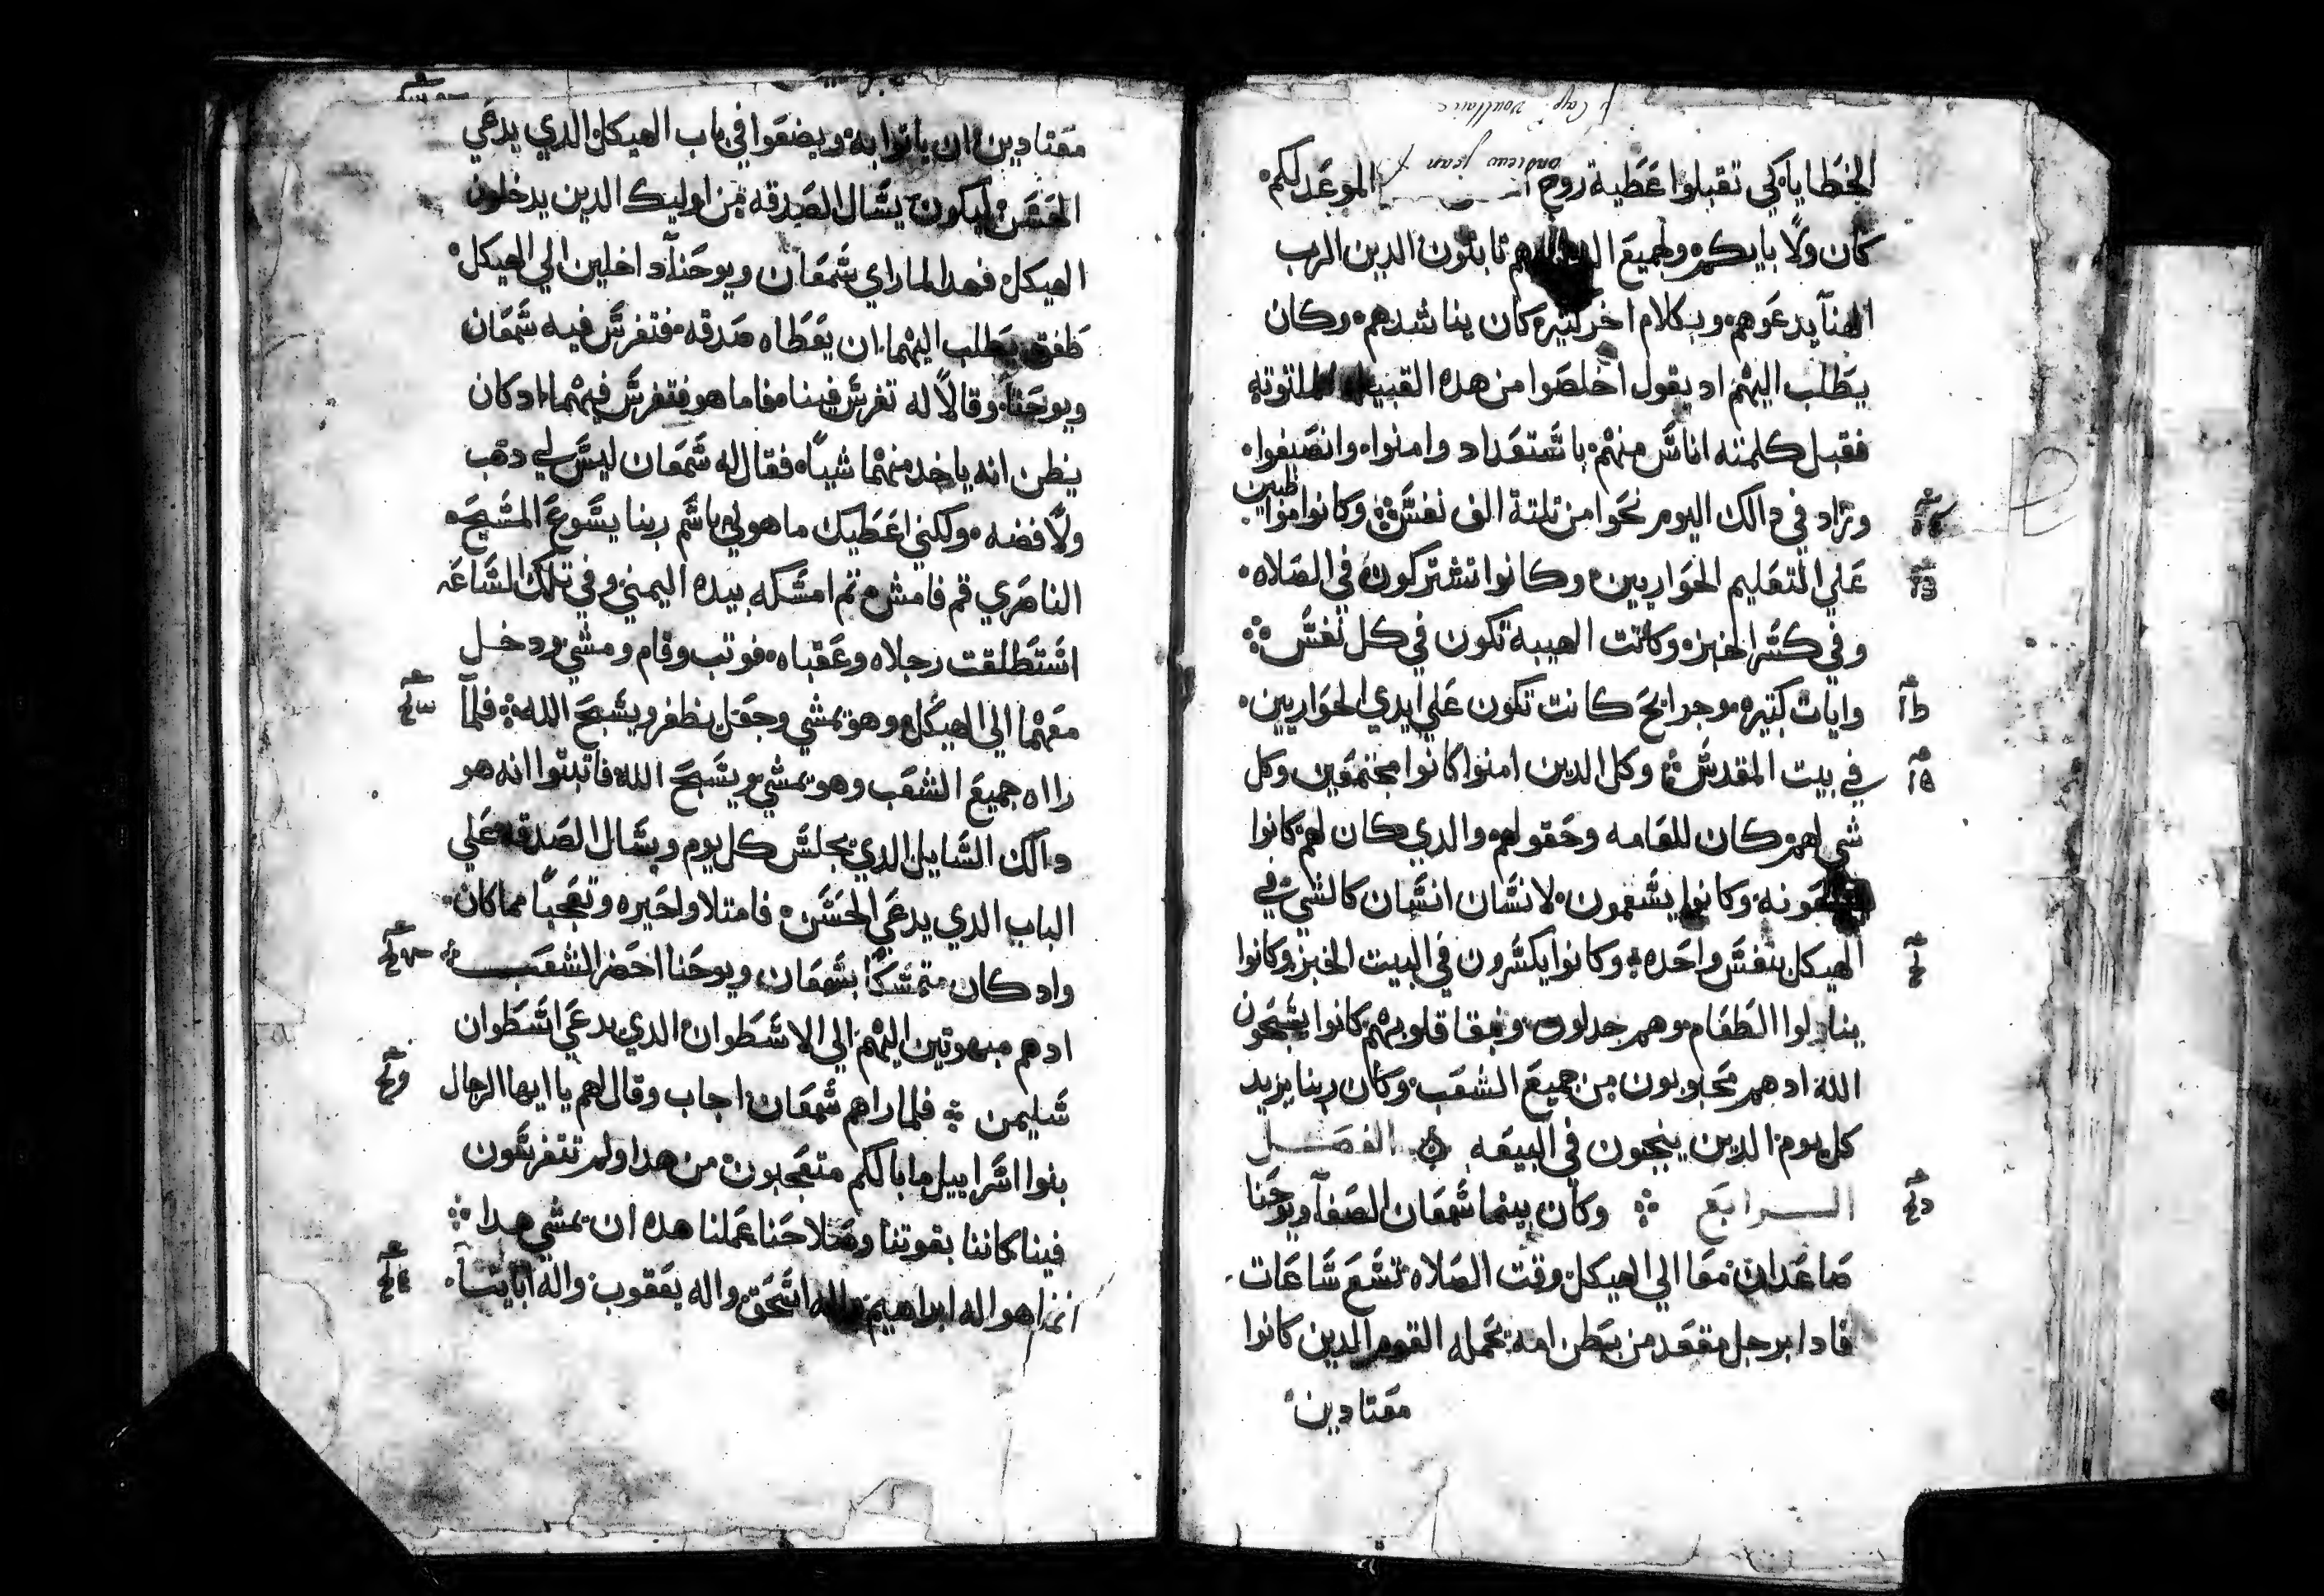 الخطايا كي تقبلوا عَطية روح الموعَد لكم
كان ولاًبايكم ولجميعَ هم نابتون الدين الرب
الهنا يدعَوهم وبكلام اخر كتيره كان يناشدهم وكان
يطلب اليهم اد يقول اخلصَوا من هده القبيله الملتوته
فقبل كلمته اناسَ منهم باسَتعَداد وامنوا وانصَبغوا
وزاد في دالك اليوم نحَوا من تلتة الف نفسَ وكانوا مواظبين
عَلي التعَليم الحَواريين وكانوا تشتركون في الصَلاه
وفي كسَر الخبزه وكانت الهيبة تكون في كل نفسَ
وايات كتيره وجرايحَ كانت تكون عَلي ايدي الحَواريين
في بيت المقدسَ وكل الدين امنوا كانوا مجتمعَين وكل
شي لهم كان للعَامه وحَقولهم والدي كان لهم كانوا
يبيعَونه وكانوا يسَعمون لانسَان انسَان كالشي في
الهيكل بنفسَ واحَده وكانوا يكسَرون في البيت الخبز وكانوا
يناولوا الطعَام وهم جدلون ونبقا قلوبهم كانوا يسَبحَون
الله ادهم محَبوبون من جميعَ الشعَب وكان ربنا يزيد
كل يوم الدين ينجون في البيعَه الفصَل
الرابعَ وكان بينما شَمعَان الصَفا ويوحَنا
صَاعَدان معَا الي الهيكل وقت الصَلاه تسَعَ سَاعَات
فادا برجل مقعَد من بطن امه تحَمله القوم الدين كانوا
معَتادين
معَتادين ان ياتوا به ويضعَوا في باب الهيكل الدي يدعَي
الحَسَن ليكون يسَال الصَدقه من اوليك الدين يدخلون
الهيكل فهدا لما راي شَمعَان ويوحَنا داخلين الي الهيكل
طفق يطلب اليهما ان يعَطاه صَدقه فتفرسَ فيه شَمعَان
ويوحَنا وقالاً له تفرسَ فينا فاما هو فتفرسَ فيهما اد كان
يظن انه ياخد منهما شياً فقال له شَمعَان ليسَ لي دهب
ولاً فضه ولكني اعَطيك ما هو لي باسَم ربنا يسَوعَ المسَيحَ
الناصَري قم فامش تم امسَكه بيده اليمني وفي تلك السَاعَه
اسَتطلقت رجلاه وعَقباه فوتب وقام ومشي ودخل
معَهما الي الهيكل وهو يمشي وجعَل يظفر ويسَبحَ الله فلما
رااه جميعَ الشعَب وهو يمشي ويسَبحَ الله فاتبتوا انه هو
دالك السَايل الدي يجلسَ كل يوم ويسَال الصَدقه عَلي
الباب الدي يدعَي الحَسَن فامتلاوا حَيره وتعَجباً مما كان
واد كان متمسَكاً بشَمعَان ويوحَنا احَضر الشعَب
ادهم مبهوتين اليهم الي الاسَطوان الدي يدعَي اسَطوان
سَليمن فلما راهم شَمعَان اجاب وقال لهم يا ايها الرجال
بنوا اسَراييل ما بالكم متعَجبون من هدا ولم تتفرسَون
فينا كاننا بقوتنا وصَلاحَنا عَملنا هده ان يمشي هدا
انما هو اله ابراهيم واله اسَحَق واله يعَقوب واله ابايتنا